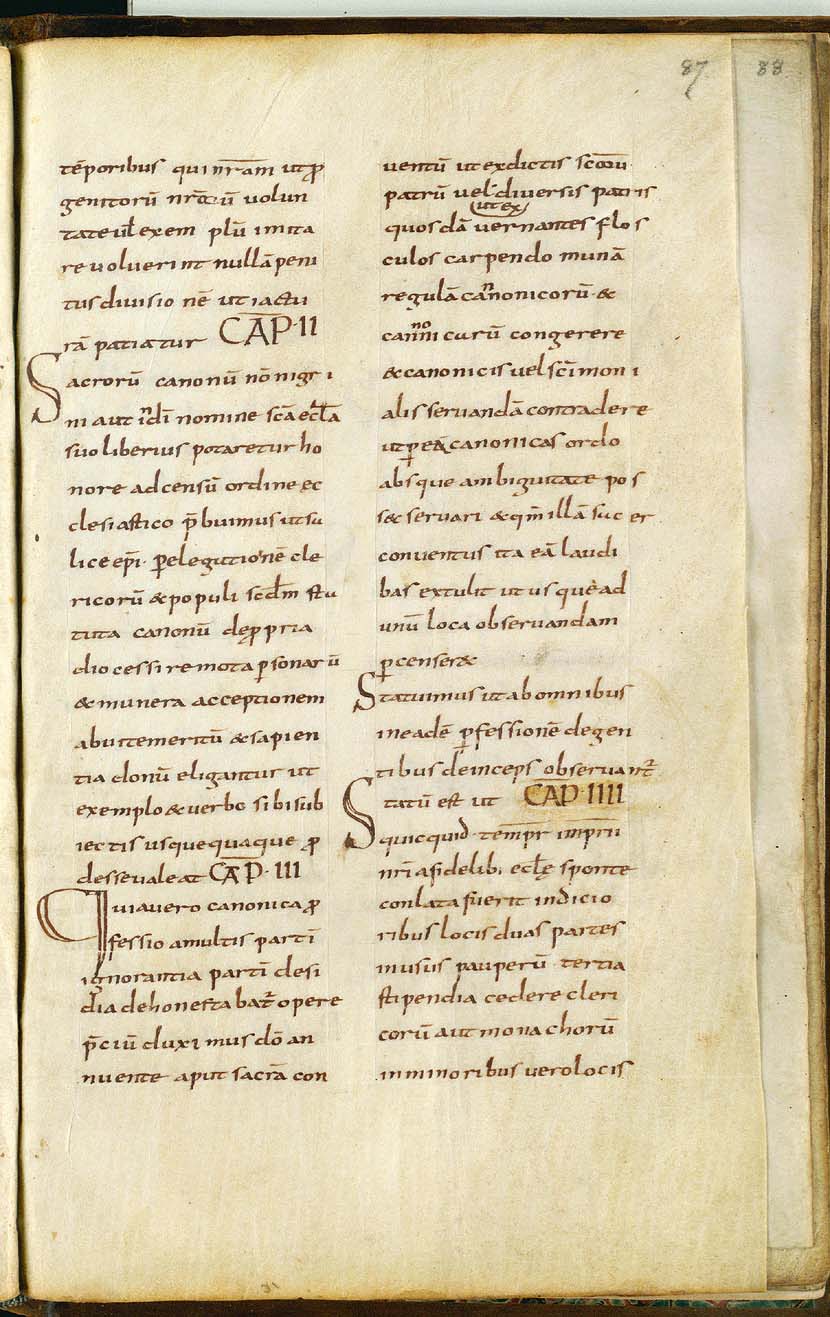 87 88
tẽporibus qui nr̃am ut ꝓ
genitorũ nr̃orũ volun
tate ul̃ exem plũ imita
re voluerint nullã peni
tus divisionẽ ut iactu
rã patiatur CAP̃·II
Sacrorũ canonũ nõ nigri
ni aut r̃di nomine scã eccl̃a
suo liberius potaretur ho
nore adcensũ ordine ec
clesiastico p̃buimus ut sci
lice ep̃i· ꝑ elegutionẽ cle
ricorũ & populi scdm̃ stu
tuta canonũ dę ꝓpria
diocessi remota ꝑsonarũ
& munera acceptionem
ab vitemeritũ & sapien
tia donũ eligantur ut
exemplo & verbo sibi sub
iectis usque quaque ꝓ
desse valeat CAP̃·III
Quia vero canonica ꝓ
fessio a multis partĩ
ignorantia partĩ desi
dia dehonestabat̃ opere
p̃ciũ duximus dõ an
nuente aput sacrã con
ventũ ut ex dictis scõrũ
patrũ vel diversis patris
ut ex
quosdã vernantes flos
culos carpendo munã
regulã cañonicorũ &
no
canñi curũ congerere
& canonicis vel scĩmoni
alis servandã contradere
ut ꝑ eã canonicas ordo
absque ambiguitate pos
s& servari & qm̃ illã sucer
conventus ita eã laudi
bas extulit ut usque ad
unũ loca observandam
ꝑcenser&
Statuimus ut ab omnibus
in eadẽ ꝓfessionẽ degen
tibus deinceps observant̃
Statũ est ut CAP̃·IIII
quicquid temp̃r imp̃rii
nr̃i a fidelib; ecl̃ę sponte
conlata fuerit in dicio
ribus locis duas partes
in usus pauperũ tertia
stipendia cedere cleri
corũ aut monachorũ
in minoribus vero locis